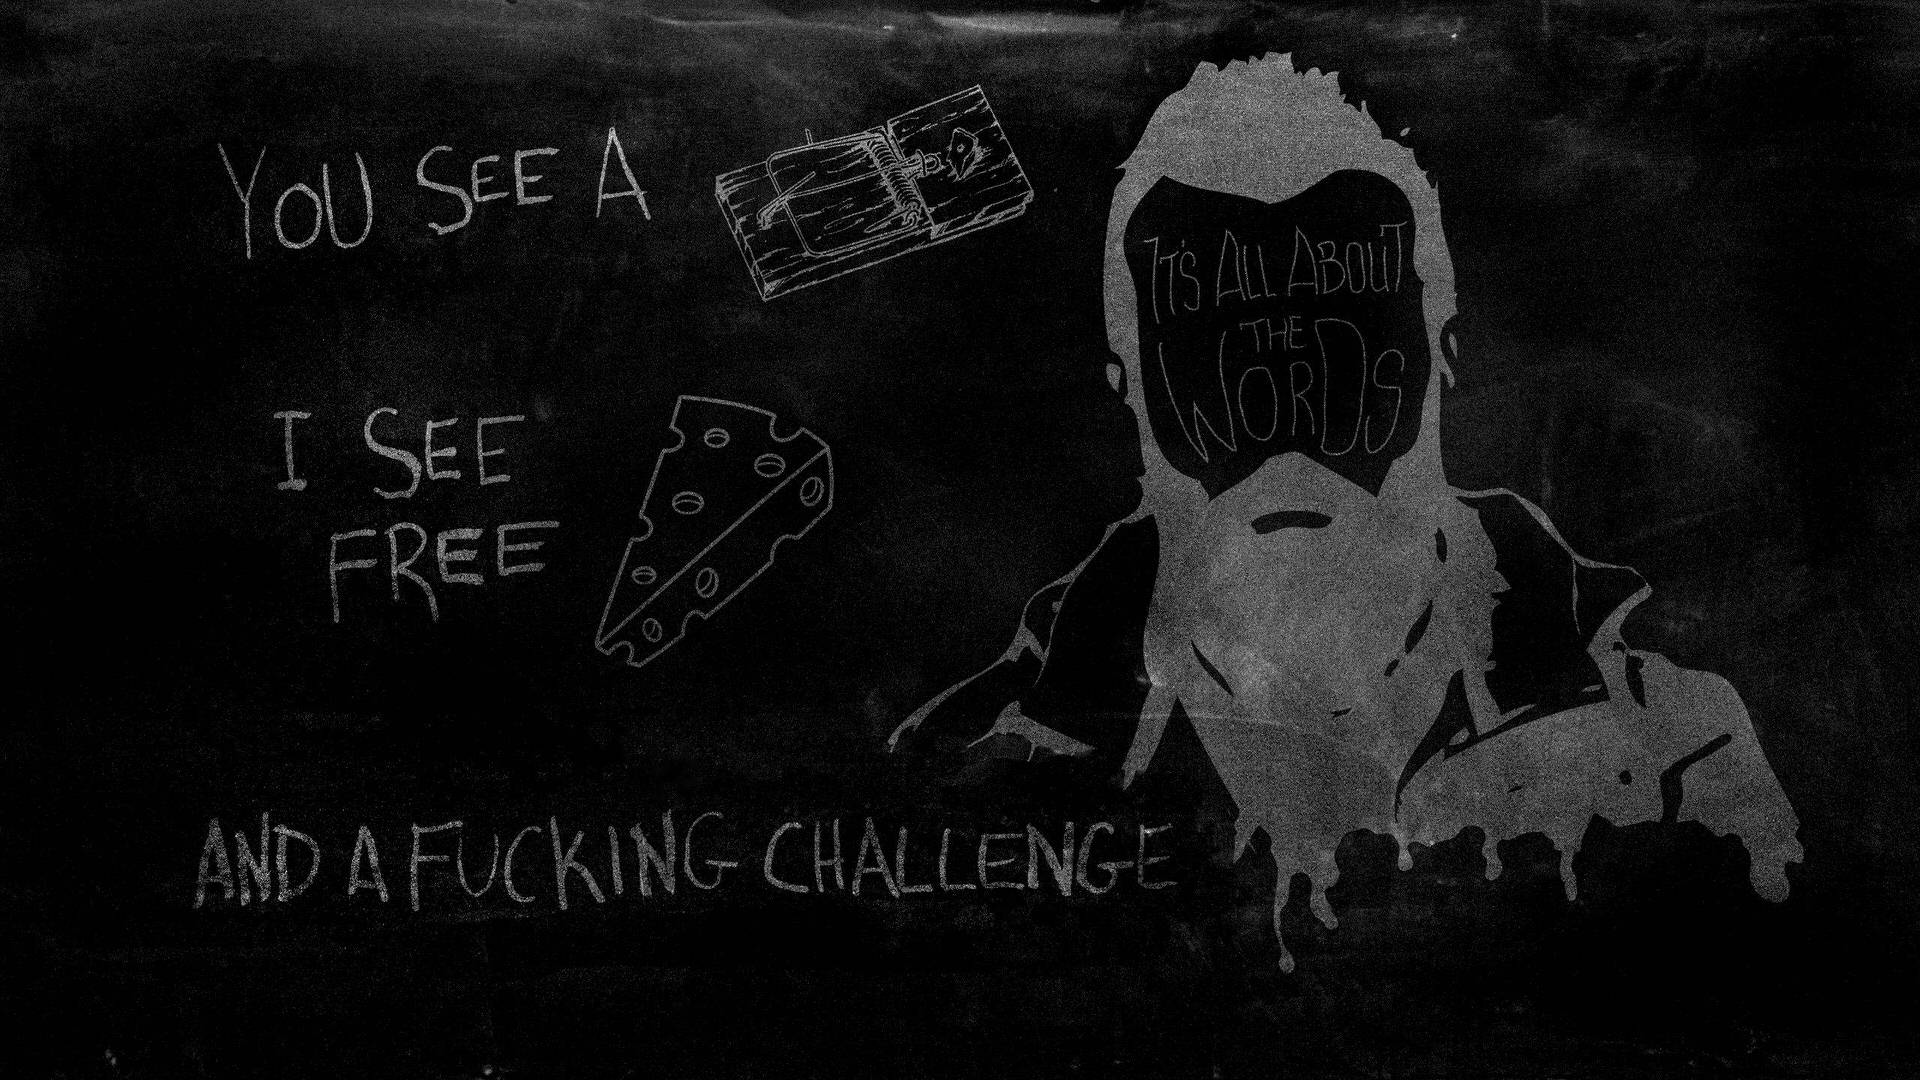 YOU SEE A
I SEE
FREE
AND A FUCKING CHALLENGE
IT'S ALL ABOUT
THE
WORDS